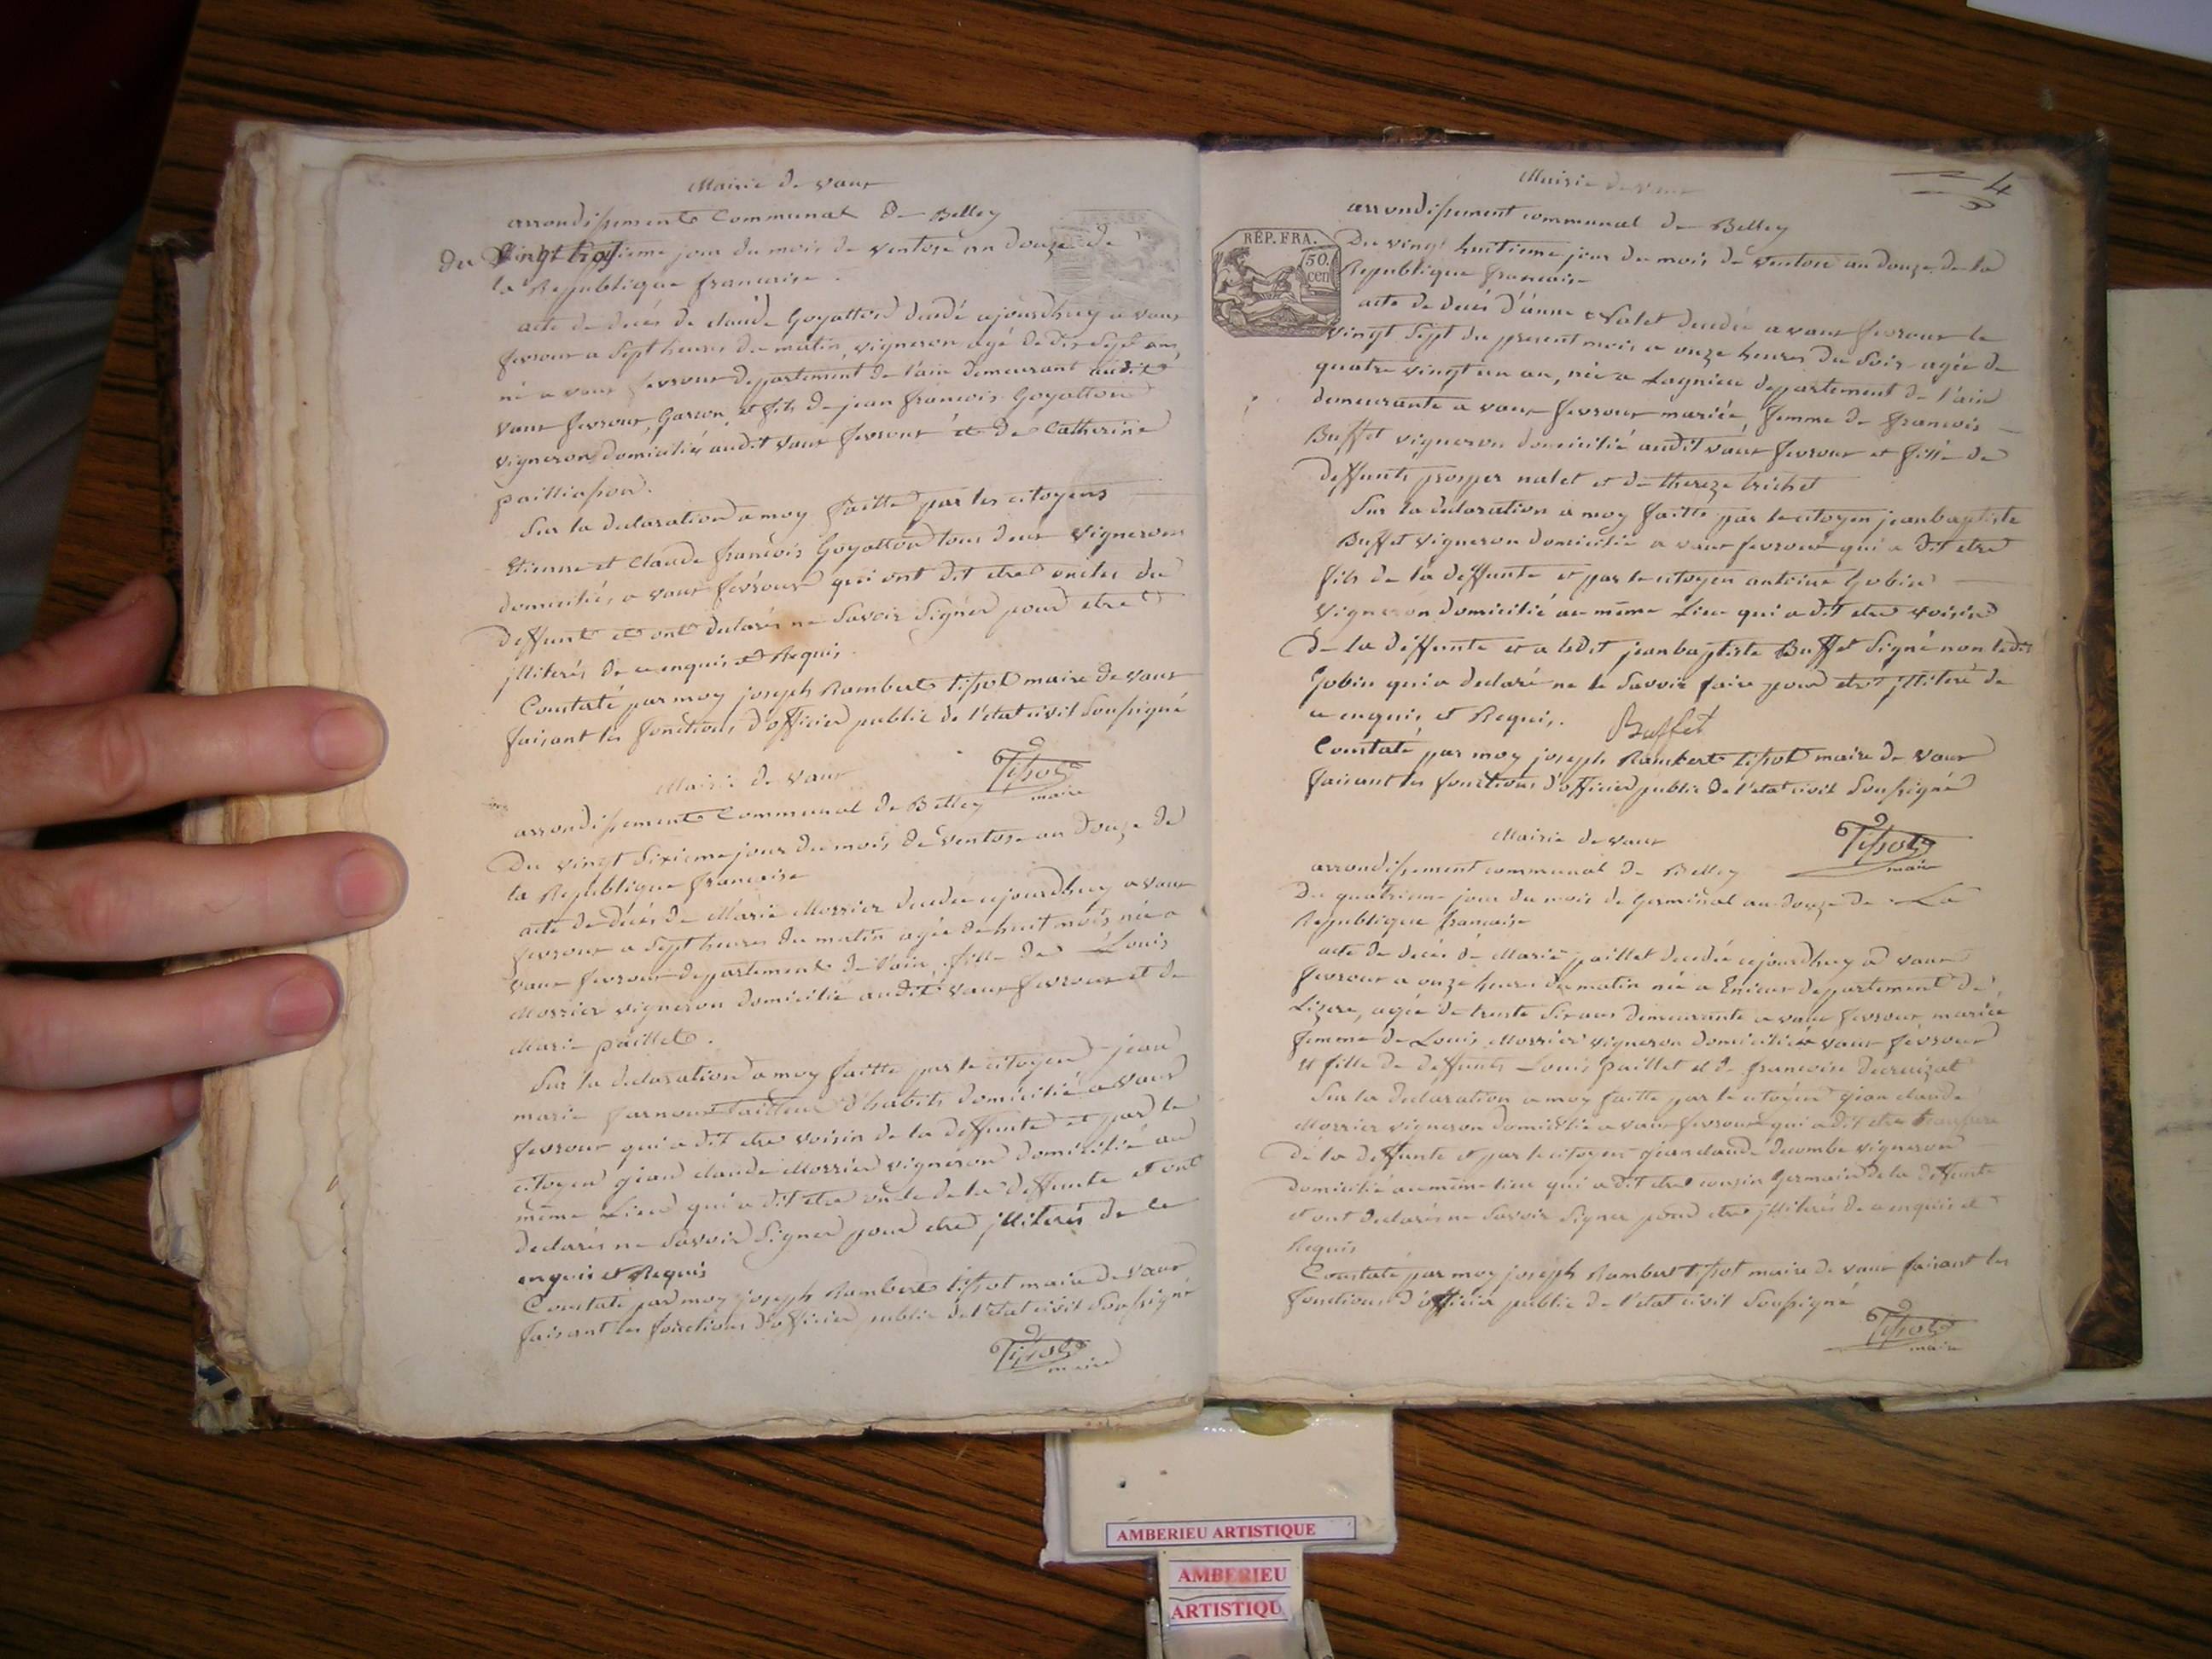 Mairie de vaux
arrondissement Communal de Belley
du vingt troisieme jour du mois de ventose an douze de
la Republique francaise.
acte de decés de claude Goyatton decedé ajourdhuy a vaux
fevroux a sept heures du matin, vigneron agé de dix sept ans,
né a vaux fevroux departement de l'ain demeurant audit
vaux fevroux, Garcon, et fils de jean francois Goyatton
vigneron domicilié audit vaux fevroux et de Catherine
pailliasson.
Sur la declaration a moy faitte par les citoyens
Etienne et Claude francois Goyatton tous deux vignerons
domiciliés a vaux fevroux qui ont dit etre oncles du
deffunt et ont declarés ne Savoir Signer pour etre
jlliterés de ce enquis et Requis.
Constaté par moy joseph Rambert tissot maire de vaux
faisant les fonctions d'officier public de l'etat civil Soussigné
Tissot
maire
Mairie de vaux
arrondissement Communal de Belley
Du vingt Sixieme jour du mois de ventose an douze de
la Republique francaise
acte de décés de Marie Morrier decedée cejourdhuy a vaux
fevroux a sept heures du matin agée de huit mois née a
vaux fevroux departement de l'ain, fille de Louis
Morrier vigneron domicilié audit vaux fevroux et de
Marie paillet.
Sur la declaration a moy faitte par le citoyen jean
marie tailleur d'habits domicilié a vaux
fevroux qui a dit etre voisin de la deffunte et par le
citoyen jean claude Morrier vigneron domicilié au
même Lieu qui a dit etre oncle de la deffunte et ont
declarés ne Savoir Signer pour etre jlliterés de ce
enquis et Requis
Constaté par moy joseph Rambert tissot maire de vaux
faisant les fonctions d'officier public de l'etat civil Soussigné
Tissot
maire
4
Mairie de vaux
arrondissement communal de Belley
RÉP. FRA.
50.
cen
Du vingt huitieme jour du mois de ventose an douze de la
Republique francaise
acte de decés d'anne Nalet decedée a vaux fevroux le
vingt Sept du present mois a onze heures du Soir agée de
quatre vingt un an, née a Lagnieu departement de l'ain
demeurante a vaux fevroux mariée, femme de francois
Buffet vigneron domicilié audit vaux fevroux et fille de
deffunts prosper nalet et de thereze trichet
Sur la declaration a moy faitte par le citoyen jean baptiste
Buffet vigneron domicilié a vaux fevroux qui a dit etre
fils de la deffunte et par le citoyen antoine Gobin
vigneron domicilié au même Lieu qui a dit etre voisin
de la deffunte et a ledit jean baptiste Buffet Signé non ledit
Gobin qui a declaré ne le Savoir faire pour etre jlliteré de
ce enquis et Requis. Buffet
Constaté par moy joseph Rambert tissot maire de vaux
faisant les fonctions d'officier public de l'etat civil Soussigné
Tissot
maire
Mairie de vaux
arrondissement communal de Belley
Du quatrieme jour du mois de Germinal an douze de La
Republique francaise
acte de decés de Marie paillet decedée cejourdhuy a vaux
fevroux a onze heures du matin née a Enieux departement de
Lizere, agée de trente Six ans demeurante a vaux fevroux mariée
femme de Louis Morrier vigneron domicilié a vaux fevroux
et fille de deffunts Louis paillet et de francoise decruizat
Sur la declaration a moy faitte par le citoyen jean claude
Morrier vigneron domicilié a vaux fevroux qui a dit etre beaufrere
de la deffunte et par le citoyen jean claude decombe vigneron
domicilié au même lieu qui a dit etre cousin Germain de la deffunte
et ont declarés ne Savoir Signer pour etre jlliterés de ce enquis et
Requis
Constaté par moy joseph Rambert tissot maire de vaux faisant les
fonctions d'officier public de l'etat civil Soussigné
Tissot
maire
AMBERIEU ARTISTIQUE
AMBERIEU
ARTISTIQU